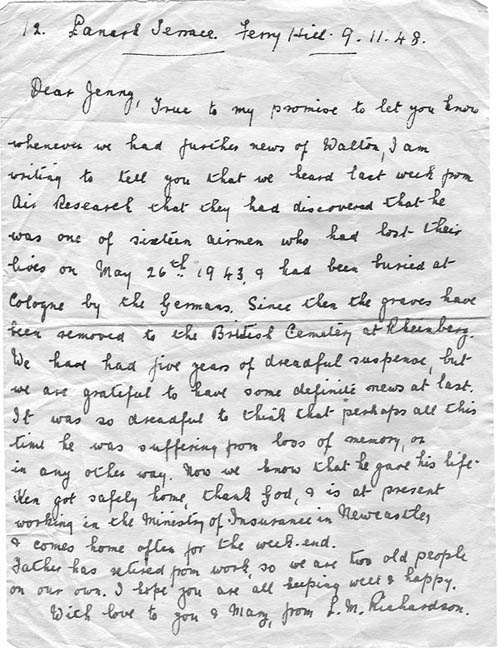 12. Lanark Terrace. Ferry Hill. 9.11.48.
Dear Jenny, True to my promise to let you know
whenever we had further news of Walton, I am
writing to tell you that we heard last week from
Air Research that they had discovered that he
was one of sixteen airmen who had lost their
lives on May 26th 1943, & had been buried at
Cologne by the Germans. Since then the graves have
been removed to the British Cemetery at Rheinberg.
We have had five years of dreadful suspense, but
we are grateful to have some definite news at last.
It was so dreadful to think that perhaps all this
time he was suffering from loss of memory, or
in any other way. Now we know that he gave his life.
Ken got safely home, thank God, & is at present
working in the Ministry of Insurance in Newcastle,
& comes home often for the week-end.
Father has retired from work, so we are two old people
on our own. I hope you are all keeping well & happy.
With love to you & Mary, from L. M. Richardson.